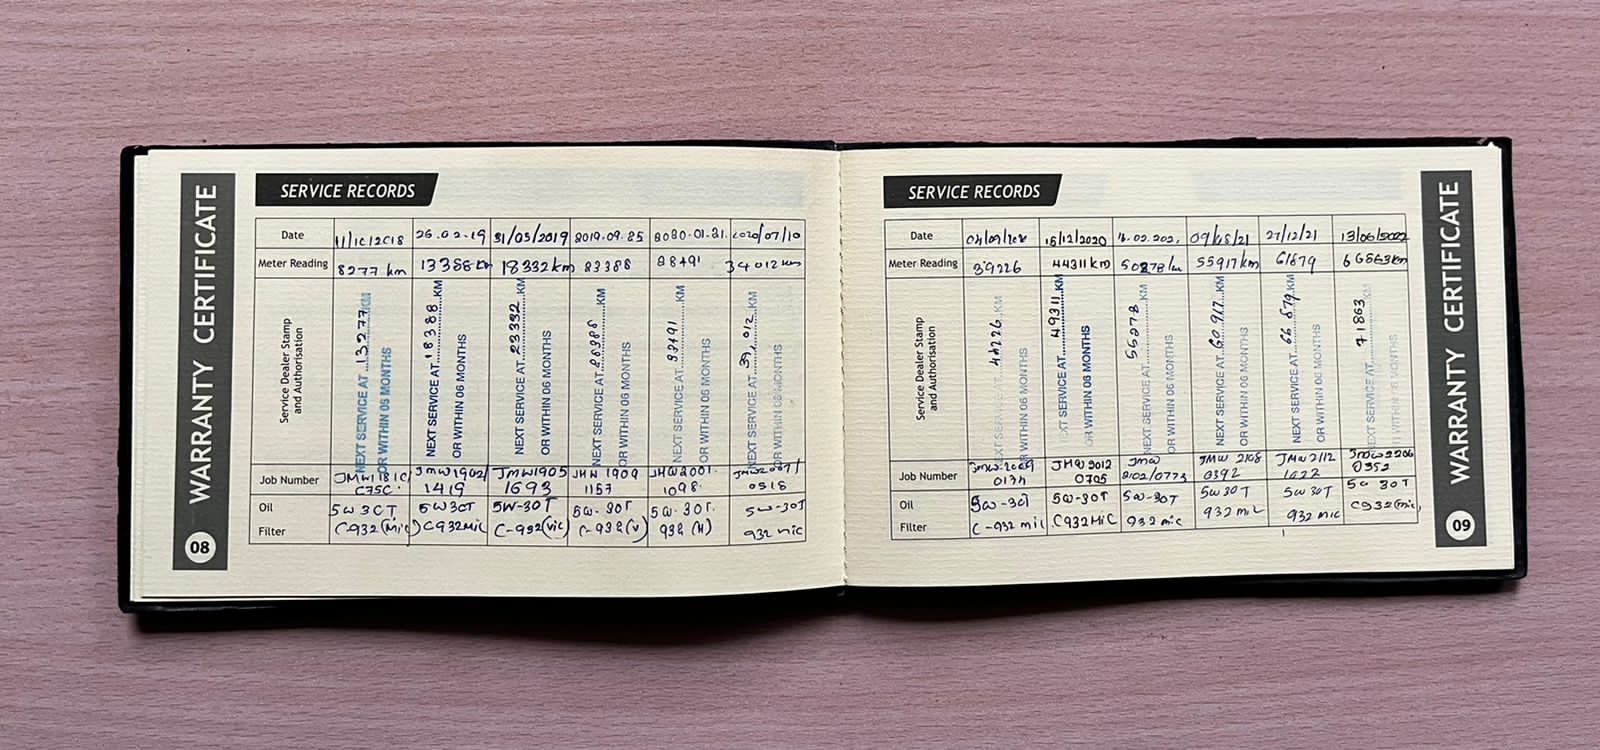 WARRANTY CERTIFICATE
08
SERVICE RECORDS
Date 26.02.19 31/05/2019 2020/07/10
Meter Reading 8277 km 13388 km 18332 km 23388 28491 34012 km
Service Dealer Stamp
and Authorisation
NEXT SERVICE AT 13277 KM
OR WITHIN 06 MONTHS
NEXT SERVICE AT 18388 KM
OR WITHIN 06 MONTHS
NEXT SERVICE AT 23332 KM
OR WITHIN 06 MONTHS
NEXT SERVICE AT 28388 KM
OR WITHIN 06 MONTHS
NEXT SERVICE AT 33491 KM
OR WITHIN 06 MONTHS
NEXT SERVICE AT 39,012 KM
OR WITHIN 06 MONTHS
Job Number JMW1902/ JMW1905
1419 1693 1157 1098 0518
Oil 5W30T 5W-30T 5W-30T 5W-30T 5W-30T
Filter C932(Mic) C932Mic 932 (H) 932 mic
SERVICE RECORDS
Date 15/12/2020 27/12/21 13/06/2022
Meter Reading 39226 44311km 50278km 55917km 61679 66863km
Service Dealer Stamp
and Authorisation
NEXT SERVICE AT 44226 KM
OR WITHIN 06 MONTHS
NEXT SERVICE AT 49311 KM
OR WITHIN 06 MONTHS
NEXT SERVICE AT 55278 KM
OR WITHIN 06 MONTHS
NEXT SERVICE AT 60917 KM
OR WITHIN 06 MONTHS
NEXT SERVICE AT 66679 KM
OR WITHIN 06 MONTHS
NEXT SERVICE AT 71863 KM
WITHIN 06 MONTHS
Job Number JMW2009 JMW2012 JMW JMW 2108 JMW2112 JMW2206
0174 0705 2102/0773 0392 1622 0352
Oil 5W-30T 5W-30T 5W-30T 5W30T 5W30T 5W 30T
Filter C-932 mic C932Mic 932 mic 932 mic 932 mic C932(mic)
WARRANTY CERTIFICATE
09